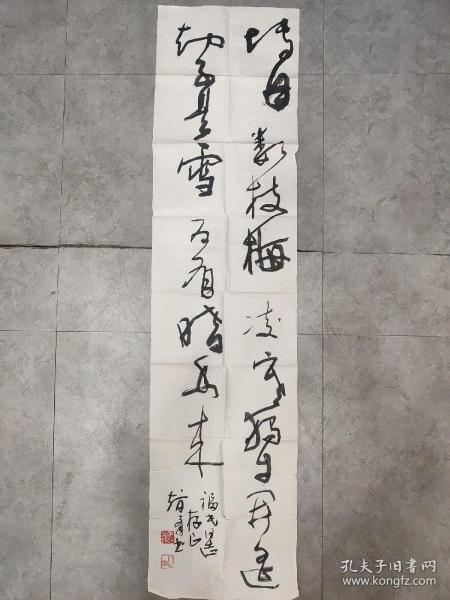 墙角数枝梅凌寒独自开遥
知不是雪为有暗香来
存正
书
孔夫子旧书网
www.kongfz.com